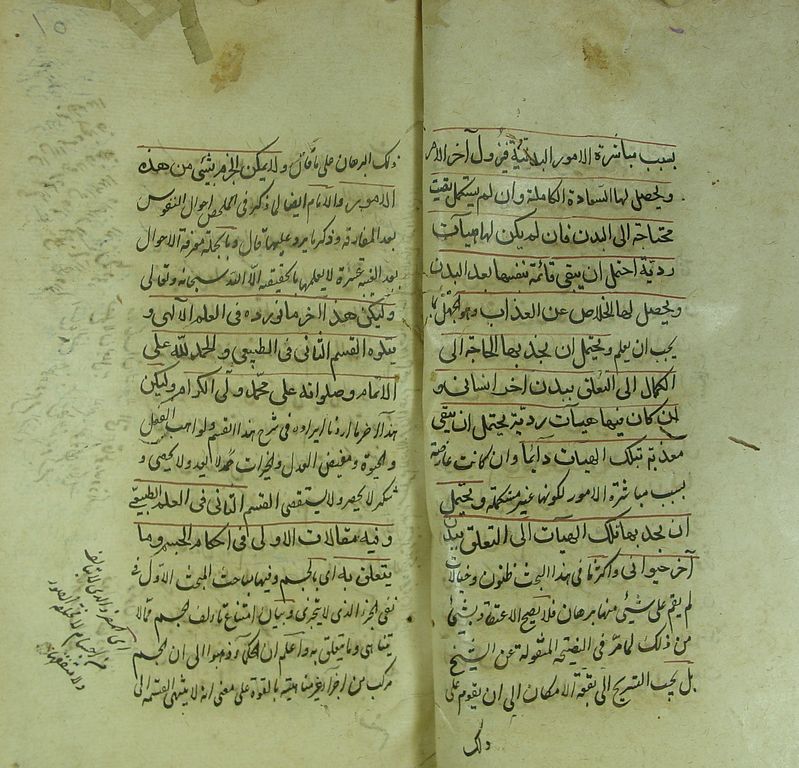 بسبب مباشرة الامور البدنية فيزول آخر الامر
ويحصل لها السعادة الكاملة وان لم يستكمل بقيت
محتاجة الى البدن فان لم يكن لها هيآت
ردية احتمل ان يبقى قائمة بنفسها بعد البدن
ويحصل لها الخلاص عن العذاب
يجب ان يعلم ويحتمل ان يجذبها الحاجة الى
الكمال الى التعلق ببدن آخر انسانى و
ان كان فيها هيات ردية يحتمل ان يبقى
معذبة بتلك الهيات دايما وان كانت عارضة
بسبب مباشرة الامور لكونها غير متكملة ويحتمل
ان يجذبها تلك الهيآت الى التعلق ببدن
آخر حيوانى واكثر ما فى هذا البحث ظنون وخيالات
لم يقم على شيئ منها برهان فلا يصح الاعتقاد بشيئ
من ذلك لما مر فى النصيحة المنقولة عن الشيخ
بل يجب التسريح الى بقعة الامكان الى ان يقوم على
ذلك
ذلك البرهان على ما قال ولا يمكن الجزم بشيئ من هذه
الامور والامام ايضا لما ذكر فى الملخص احوال النفوس
بعد المفارقة وذكر ما يرد عليها قال وبالجملة معرفة الاحوال
بعد الغيبة عسرة لا يعلمها بالحقيقة الا الله سبحانه وتعالى
وليكن هذا آخر ما نورده فى العلم الآلهى و
يتلوه القسم الثانى فى الطبيعى والحمد لله على
الاتمام وصلواته على محمد وآله الكرام وليكن
هذا آخر ما اردنا ايراده فى شرح هذا القسم ولواهب العقل
والحيوة ومفيض العدل والخيرات حمد لا يعد ولا يحصى و
شكر لا يحصر ولا يستقصى القسم الثانى فى العلم الطبيعى
وفيه مقالات الاولى فى احكام الجسم وما
يتعلق به اى بالجسم وفيها مباحث المبحث الاول فى
نفى الجزء الذى لا يتجزى وبيان امتناع تالف الجسم مما لا
يتناهى وما يتعلق به واعلم ان الحكماء ذهبوا الى ان الجسم
مركب من اجزاء غير متناهية بالقوة على معنى انه لا ينتهى القسمة الى